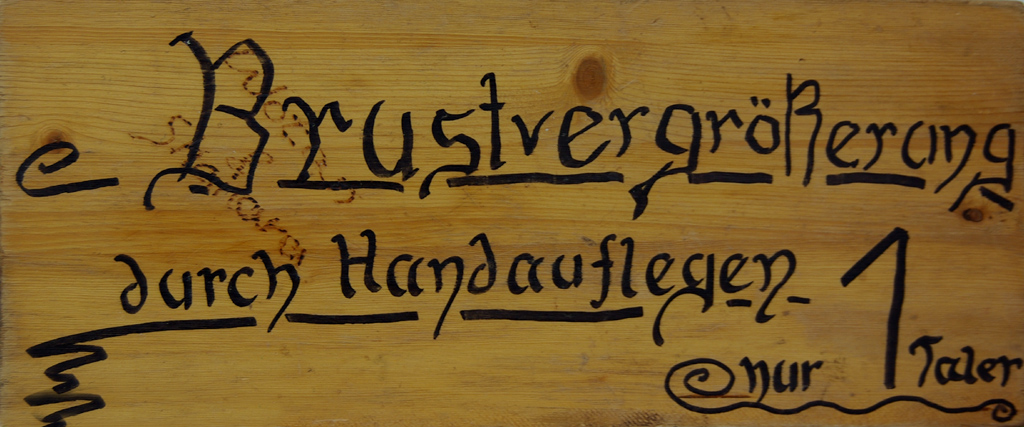 Brustvergrößerung
durch Handauflegen
nur 1 Taler